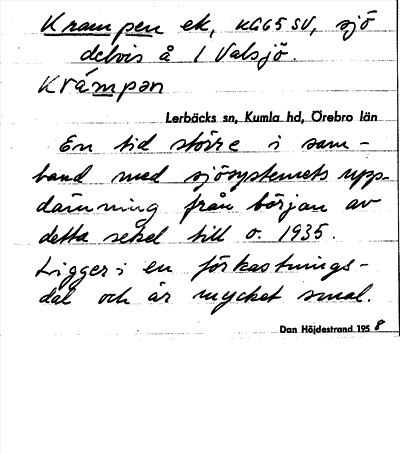 Krampen ek, KGG5 SV, sjö
delvis å 1 Valsjö.
Krámpən
Lerbäcks sn, Kumla hd, Örebro län
En tid större i sam-
band med sjösystemets upp-
dämning från början av
detta sekel till o. 1935.
Ligger i en förkastnings-
dal och är mycket smal.
Dan Höjdestrand 1958